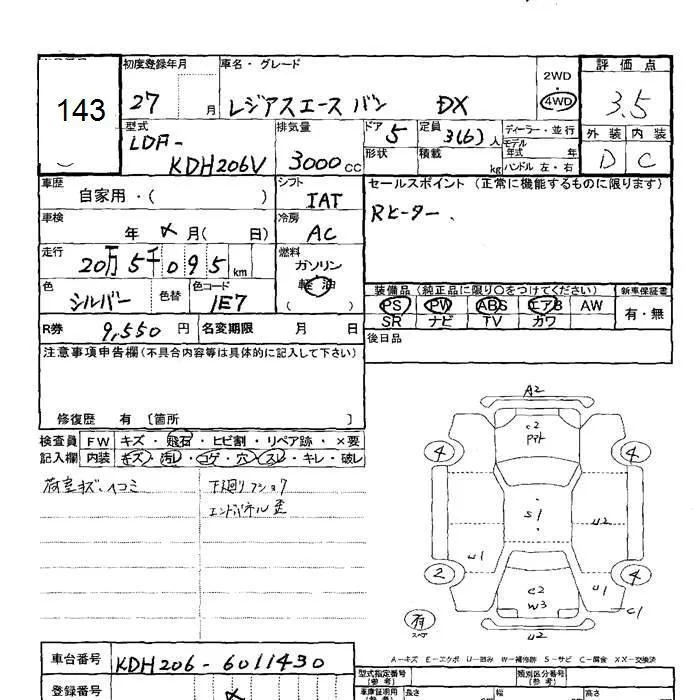 143
初度登録年月 車名・グレード 2WD 評価点
27 月 レジアスエース バン DX 4WD 3.5
型式 排気量 ドア 5 定員 3(6)人 ディーラー・並行 外装 内装
LDF- KDH206V 3000cc 形状 積載 kg モデル年式 年 ハンドル 左・右 D C
車歴 シフト セールスポイント(正常に機能するものに限ります)
自家用・( ) IAT Rヒーター、
車検 年 〆 月( 日) 冷房 AC
走行 20万5千095km 燃料 ガソリン
軽油
( )
色 シルバー 色替 色コード 1E7
装備品(純正品に限り○をつけてください) 新車保証書
PS PW ABS エアB AW 有・無
SR ナビ TV カワ
R券 9,550円 名変期限 月 日 後日品
注意事項申告欄(不具合内容等は具体的に記入して下さい)
修復歴 有〔箇所 〕
検査員 FW キズ・飛石・ヒビ割・リペア跡・×要
記入欄 内装 キズ・汚レ・コゲ・穴・スレ・キレ・破レ
荷室キズ、ヘコミ 下廻りフショク
エンドパネル歪
A2
C2
4 4
S1
U2
U1 U1
2 4
C2
W3
C1
有
スペア
U2
A-キズ E-エクボ U-凹み W-補修跡 S-サビ C-腐食 XX-交換済
車台番号 KDH206-6011430
型式指定番号(参考) 類別区分番号(参考)
登録番号 〆 長さ 幅 高さ